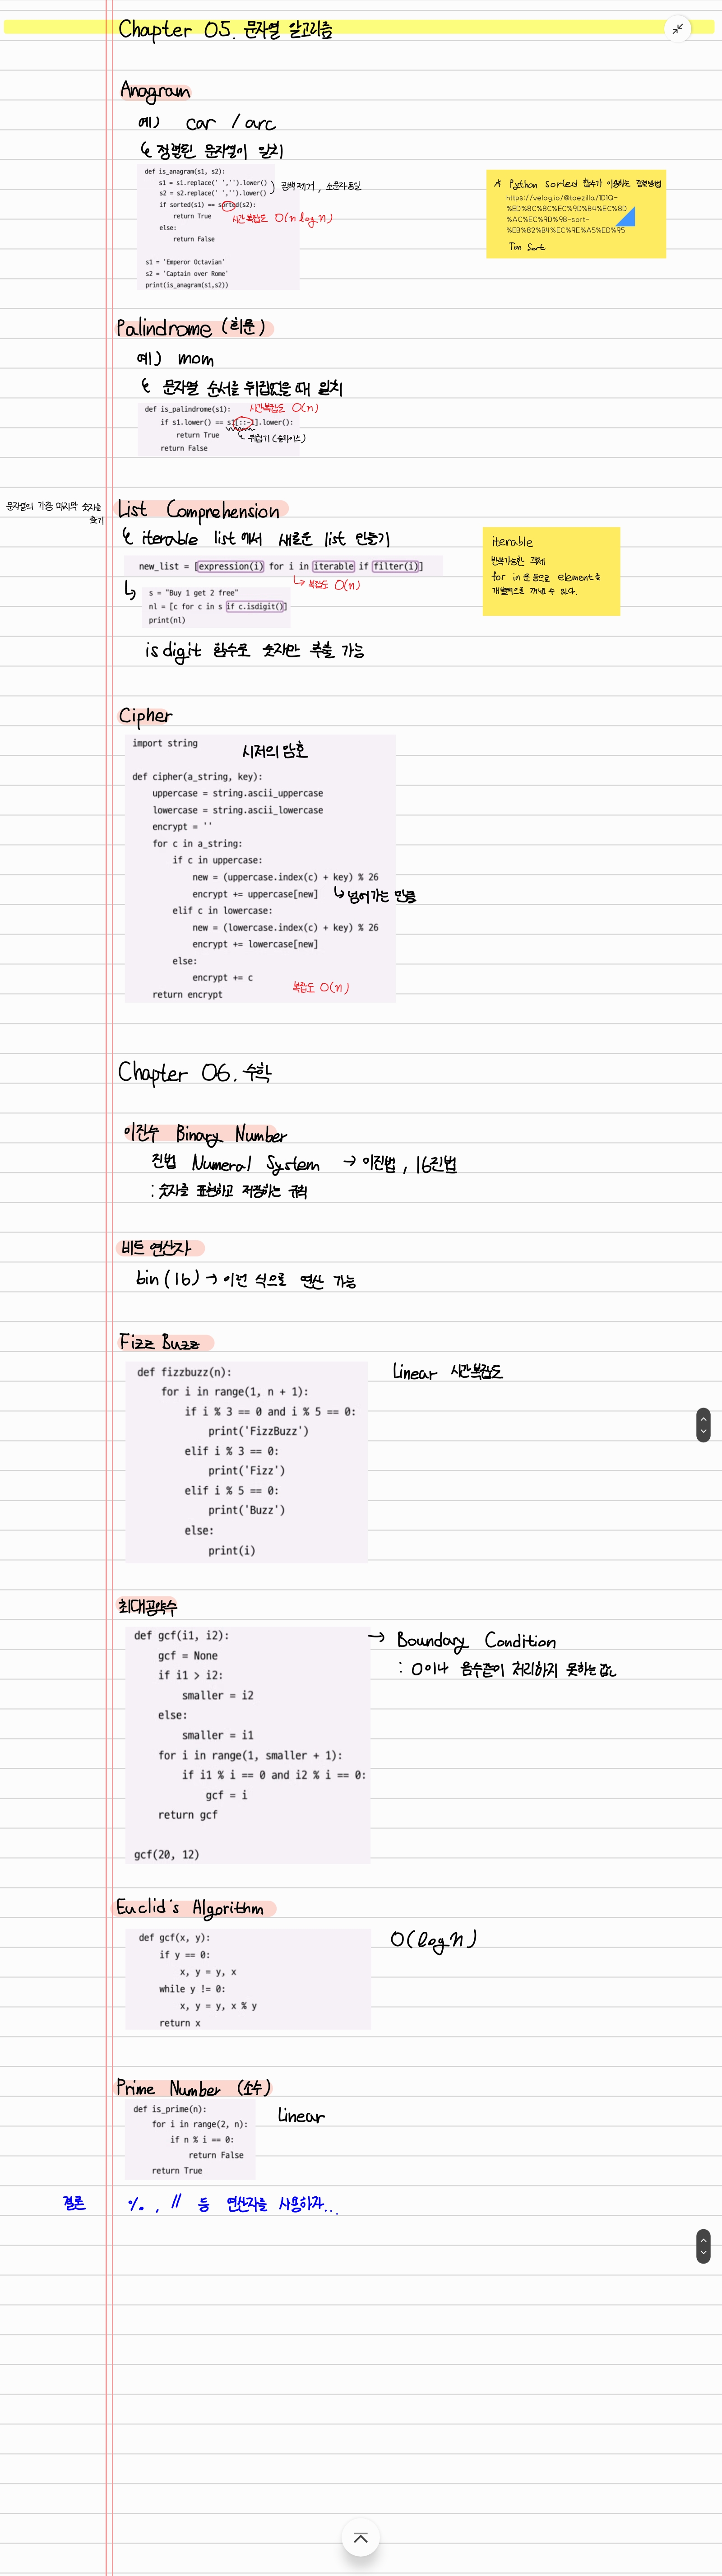 Chapter 05. 문자열 알고리즘
Anagram
예) car / arc
↳ 정렬된 문자열이 일치
def is_anagram(s1, s2):
s1 = s1.replace(' ','').lower()
s2 = s2.replace(' ','').lower()
) 공백 제거, 소문자 통일
if sorted(s1) == sorted(s2):
return True
시간복잡도 O(n log n)
else:
return False
s1 = 'Emperor Octavian'
s2 = 'Captain over Rome'
print(is_anagram(s1,s2))
* Python sorted 함수가 이용하는 정렬방법
https://velog.io/@toezilla/1D1Q-
%ED%8C%8C%EC%9D%B4%EC%8D
%AC%EC%9D%98-sort-
%EB%82%B4%EC%9E%A5%ED%95
Tim Sort
Palindrome (회문)
예) mom
↳ 문자열 순서를 뒤집었을 때 일치
def is_palindrome(s1):
시간복잡도 O(n)
if s1.lower() == s1[::-1].lower():
return True
↳ 뒤집기 (슬라이스)
return False
문자열의 가장 마지막 숫자를
찾기
List Comprehension
↳ iterable list 에서 새로운 list 만들기
new_list = [expression(i) for i in iterable if filter(i)]
↳ 복잡도 O(n)
s = "Buy 1 get 2 free"
nl = [c for c in s if c.isdigit()]
print(nl)
isdigit 함수로 숫자만 추출 가능
iterable
반복가능한 객체
for in 문 등으로 element를
개별적으로 꺼낼 수 있다.
Cipher
import string
시저의 암호
def cipher(a_string, key):
uppercase = string.ascii_uppercase
lowercase = string.ascii_lowercase
encrypt = ''
for c in a_string:
if c in uppercase:
new = (uppercase.index(c) + key) % 26
encrypt += uppercase[new]
↳ 넘어가는 만큼
elif c in lowercase:
new = (lowercase.index(c) + key) % 26
encrypt += lowercase[new]
else:
encrypt += c
return encrypt
복잡도 O(n)
Chapter 06. 수학
이진수 Binary Number
진법 Numeral System → 이진법, 16진법
: 숫자를 표현하고 저장하는 규칙
비트 연산자
bin(16) → 이런 식으로 연산 가능
Fizz Buzz
def fizzbuzz(n):
Linear 시간복잡도
for i in range(1, n + 1):
if i % 3 == 0 and i % 5 == 0:
print('FizzBuzz')
elif i % 3 == 0:
print('Fizz')
elif i % 5 == 0:
print('Buzz')
else:
print(i)
최대공약수
def gcf(i1, i2):
→ Boundary Condition
gcf = None
: 0이나 음수같이 처리하지 못하는 값
if i1 > i2:
smaller = i2
else:
smaller = i1
for i in range(1, smaller + 1):
if i1 % i == 0 and i2 % i == 0:
gcf = i
return gcf
gcf(20, 12)
Euclid's Algorithm
def gcf(x, y):
O(log n)
if y == 0:
x, y = y, x
while y != 0:
x, y = y, x % y
return x
Prime Number (소수)
def is_prime(n):
Linear
for i in range(2, n):
if n % i == 0:
return False
return True
결론 %, // 등 연산자를 사용하자...